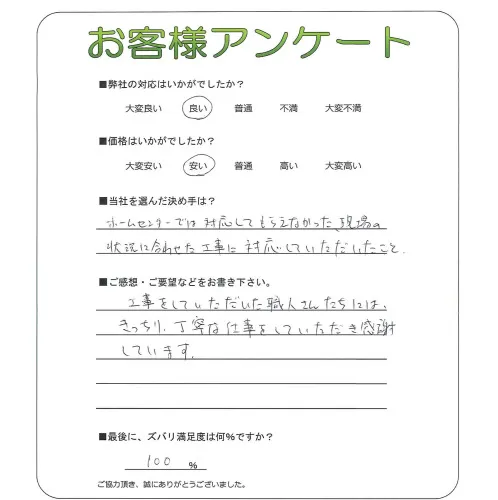 お客様アンケート
■弊社の対応はいかがでしたか?
大変良い 良い 普通 不満 大変不満
■価格はいかがでしたか?
大変安い 安い 普通 高い 大変高い
■当社を選んだ決め手は?
ホームセンターでは対応してもらえなかった、現場の
状況に合わせた工事に対応していただいたこと。
■ご感想・ご要望などをお書き下さい。
工事をしていただいた職人さんたちには、
きっちり、丁寧な仕事をしていただき感謝
しています。
■最後に、ズバリ満足度は何%ですか?
100 %
ご協力頂き、誠にありがとうございました。